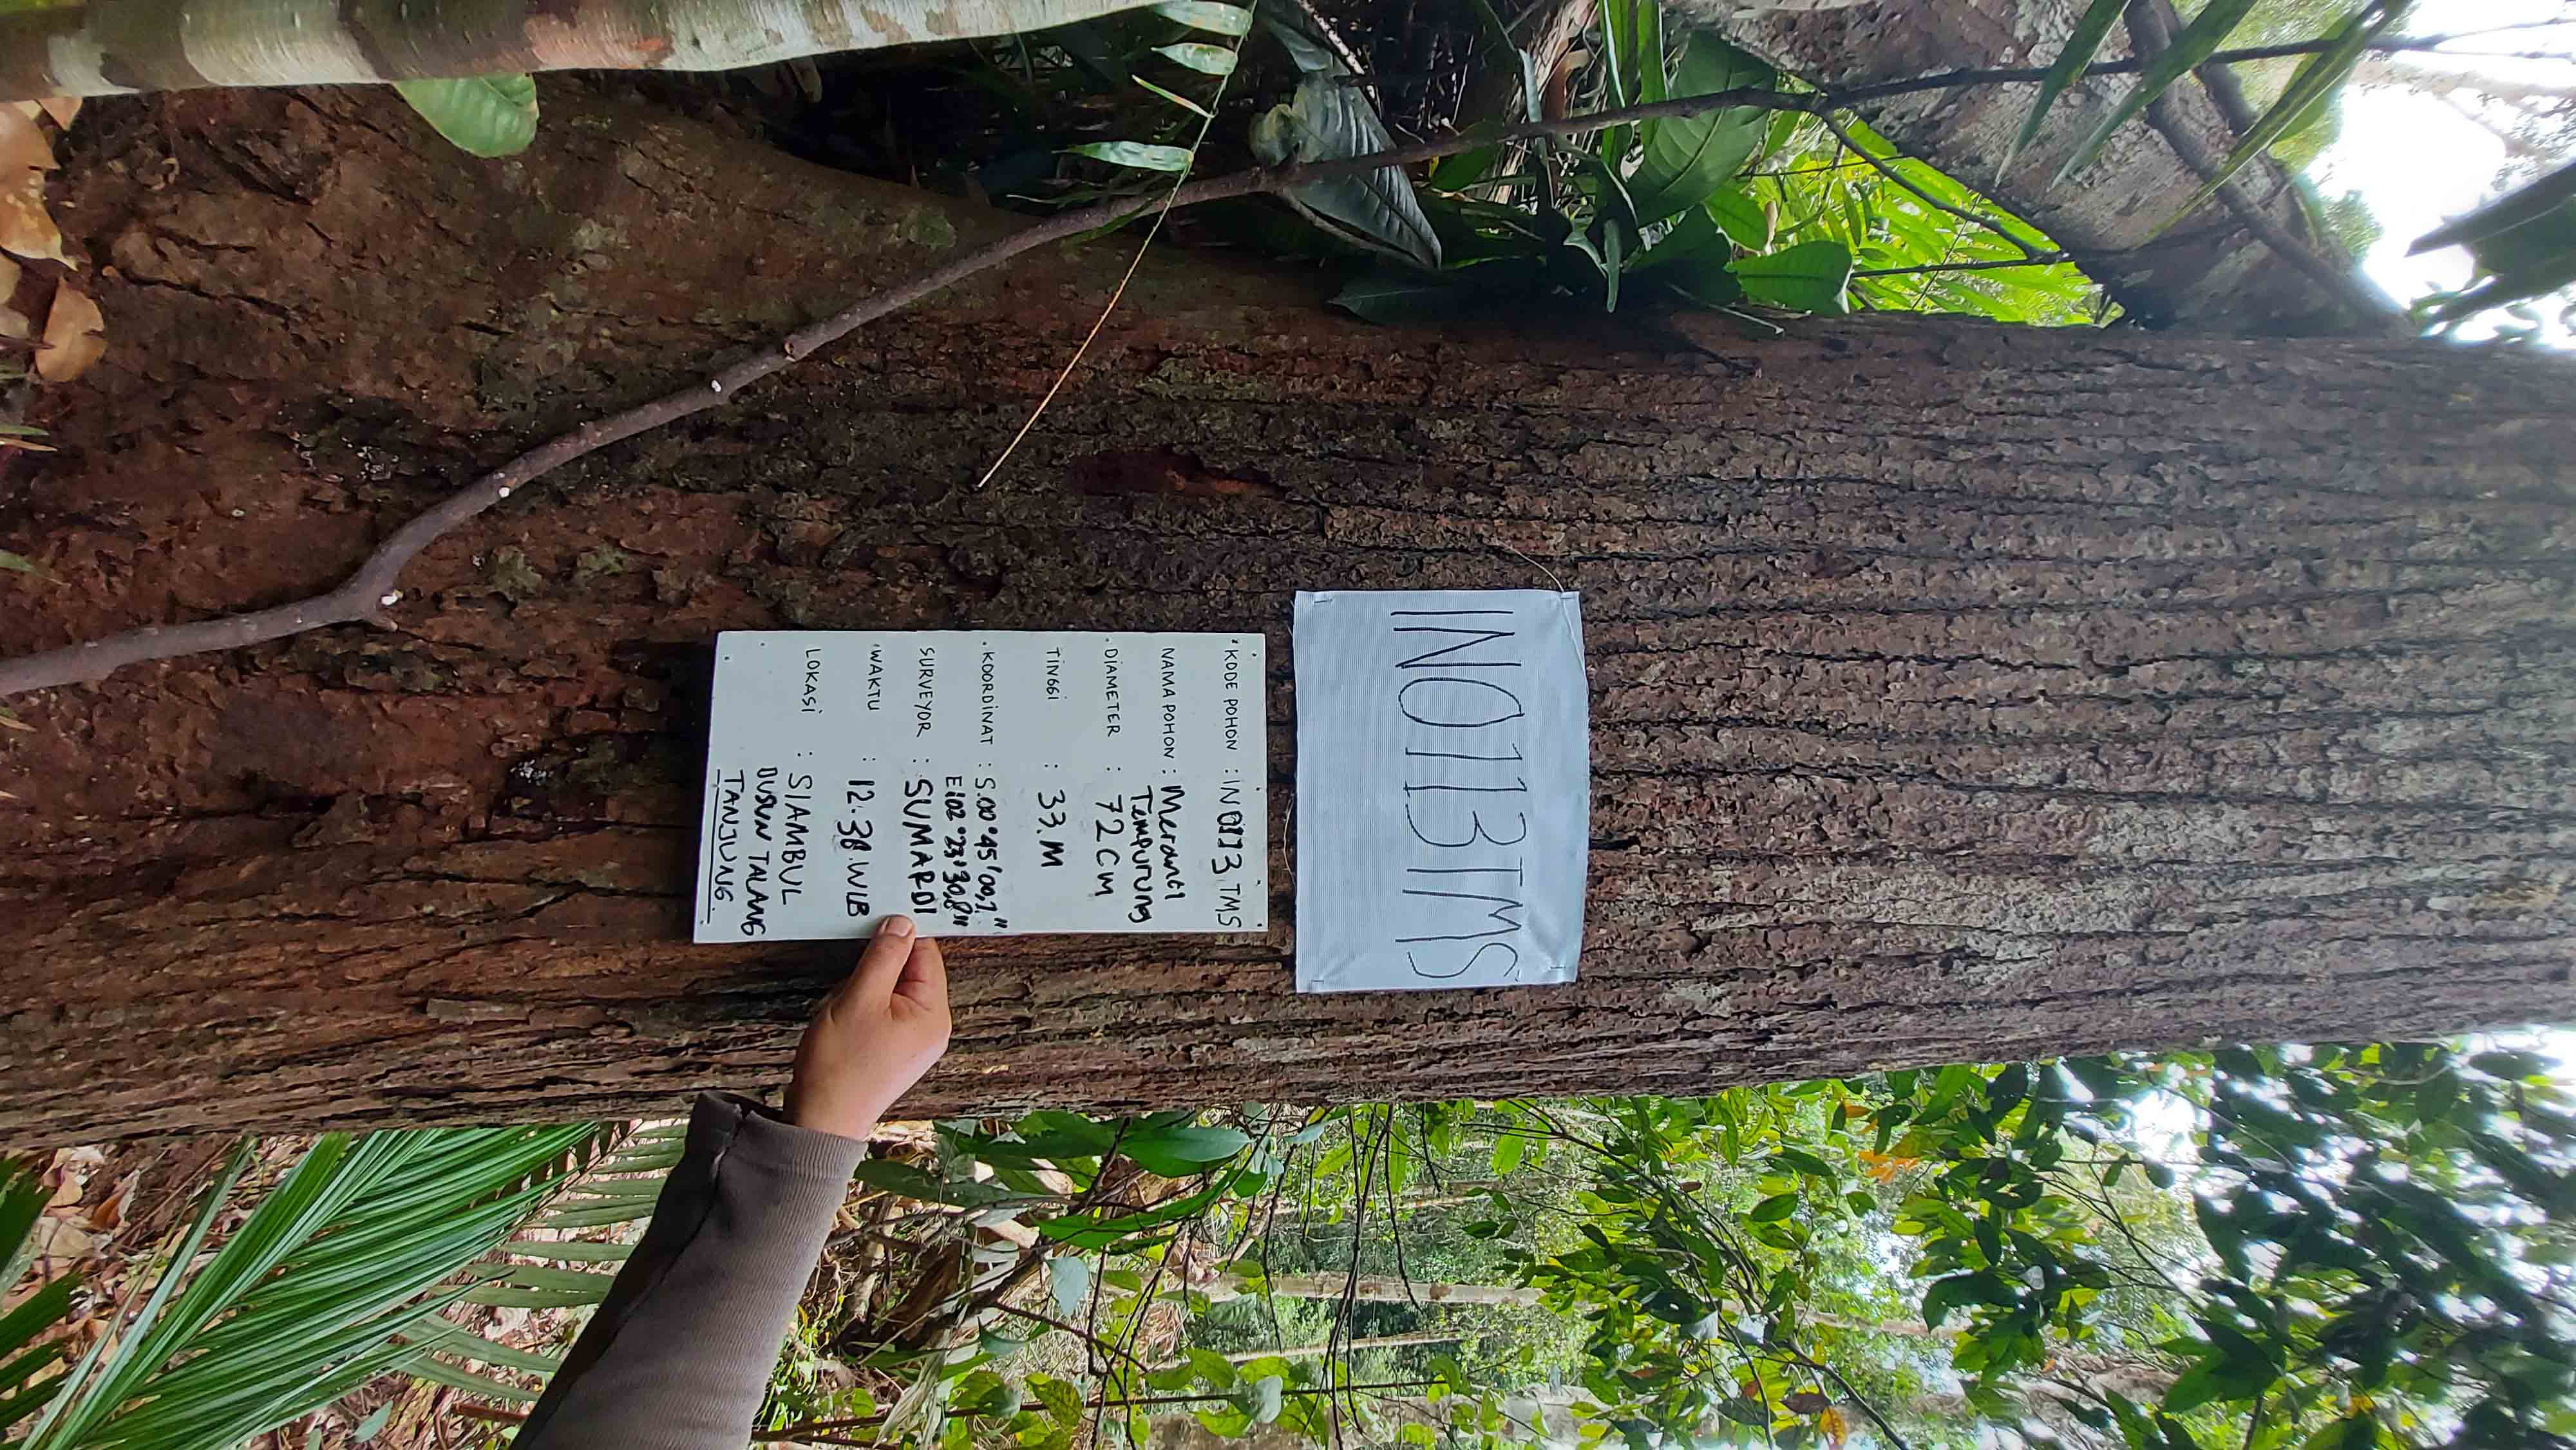 IN0113TMS
KODE POHON : IN0113 TMS
NAMA POHON : Meranti
Tempurung
DIAMETER : 72 CM
TINGGI : 33.M
KOORDINAT : S.00°45'00,7"
E102°23'30,8"
SURVEYOR : SUMARDI
WAKTU : 12.38.WIB
LOKASI : SIAMBUL
DUSUN TALANG
TANJUNG.